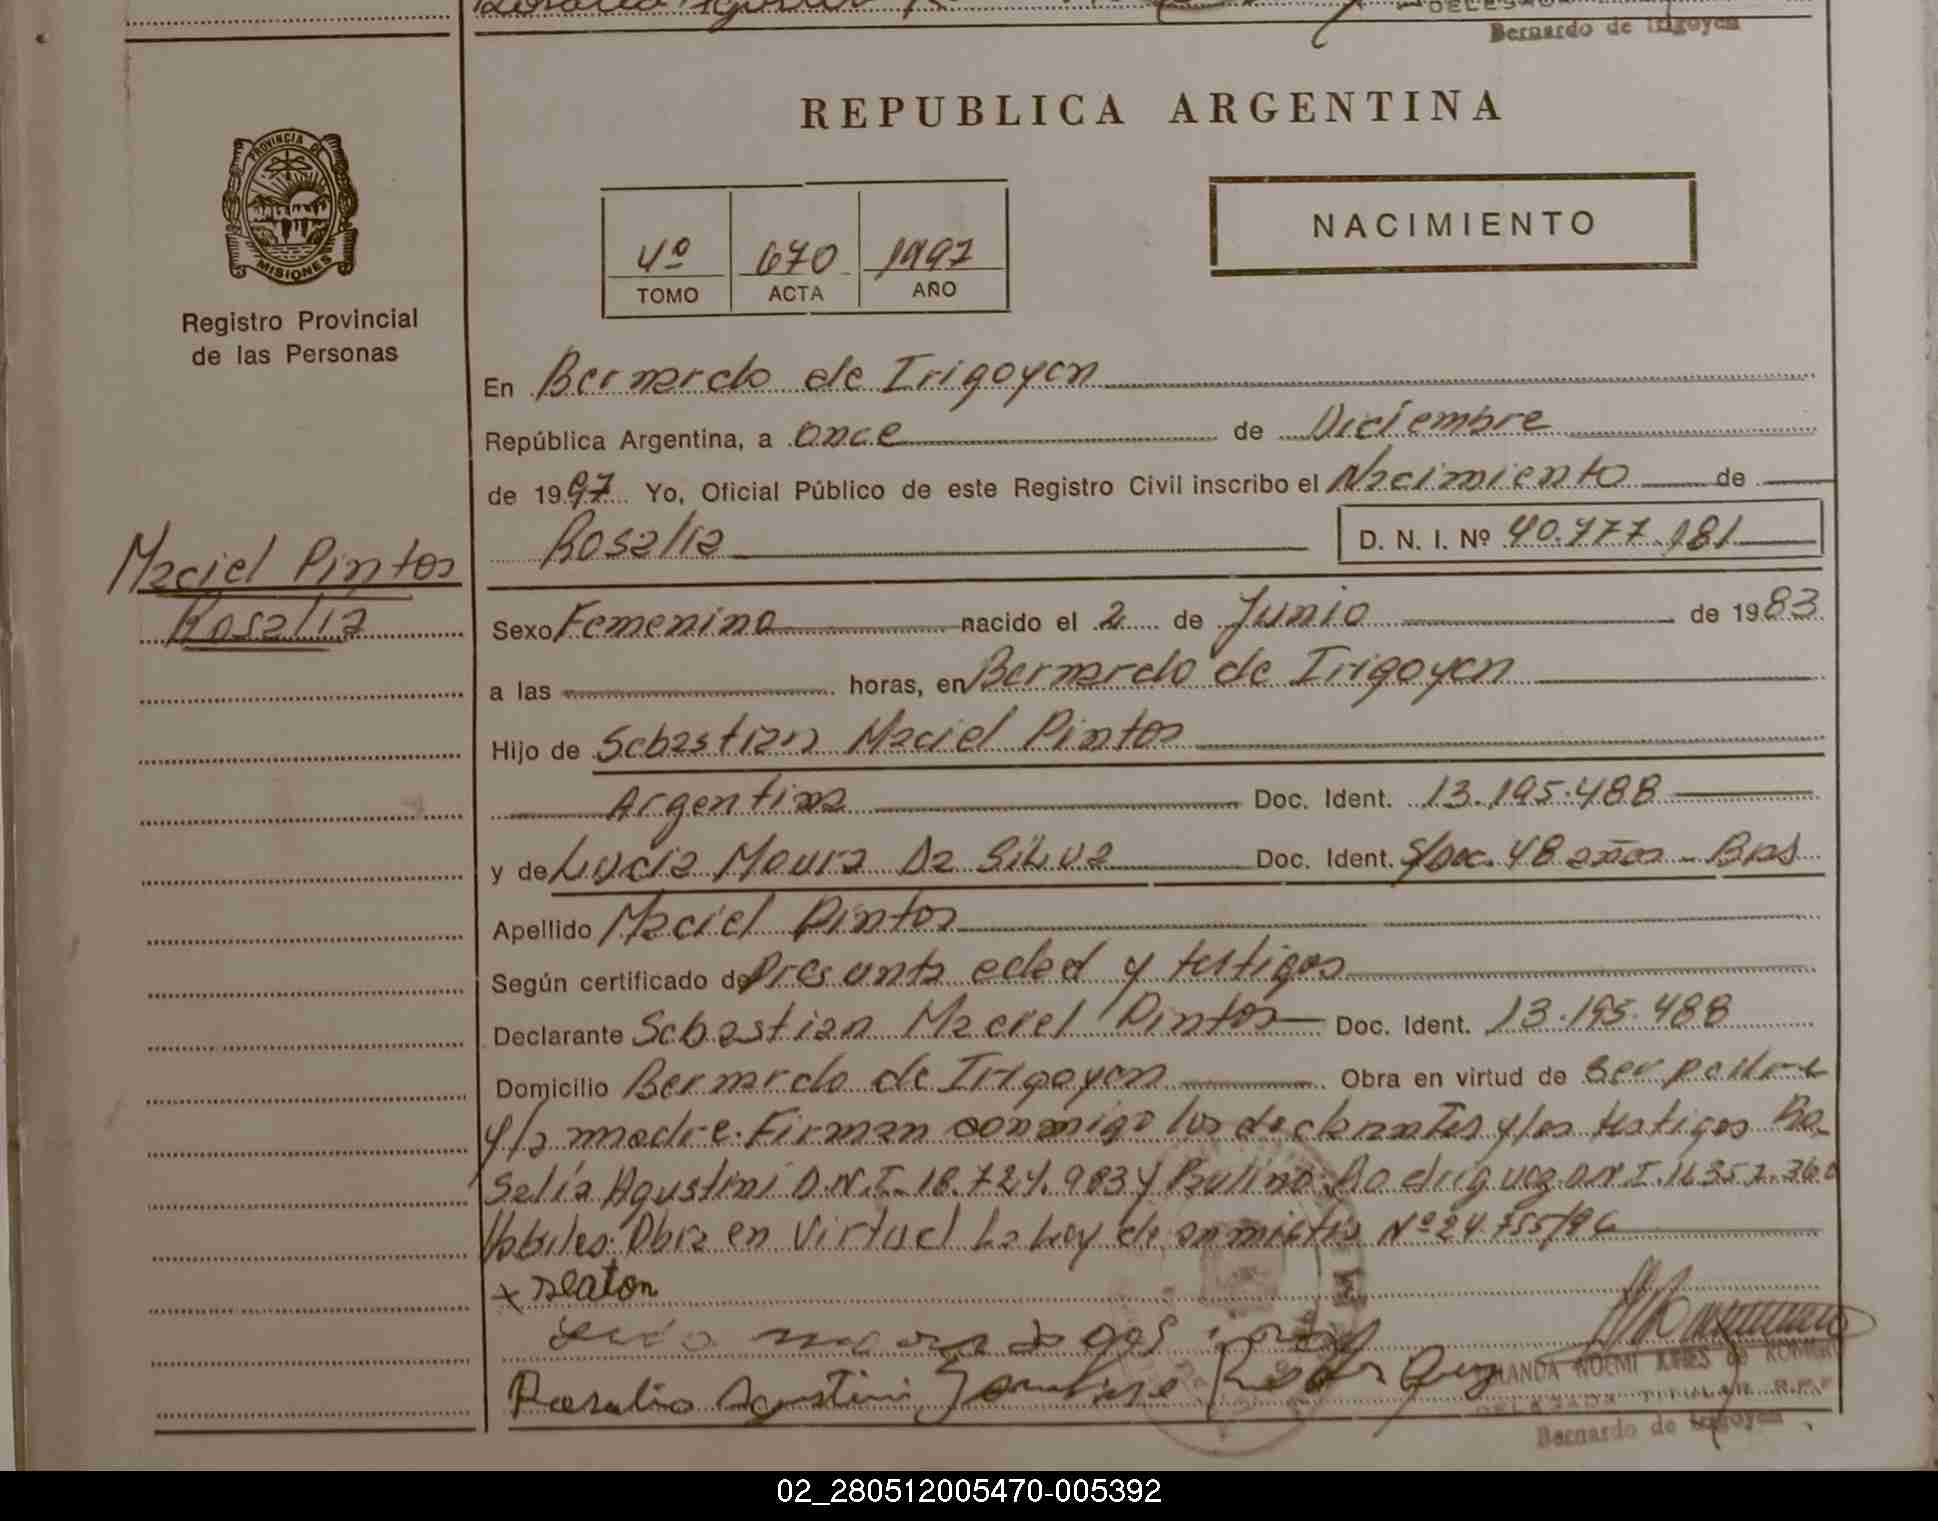 Bernardo de Irigoyen
REPUBLICA ARGENTINA
PROVINCIA DE
MISIONES
Registro Provincial
de las Personas
4º 670 1997
TOMO ACTA AÑO
NACIMIENTO
En Bernardo de Irigoyen
República Argentina, a once de Diciembre
de 1997 Yo, Oficial Público de este Registro Civil inscribo el Nacimiento de
Rosalia D. N. I. Nº 40.777.181
Maciel Pintos
Rosalia
Sexo Femenino nacido el 2 de Junio de 1983
a las horas, en Bernardo de Irigoyen
Hijo de Sebastian Maciel Pintos
Argentina Doc. Ident. 13.195.488
y de Lucia Moura Da Silva Doc. Ident. S/Doc. 48 años - Bras
Apellido Maciel Pintos
Según certificado de Presunta edad y testigos
Declarante Sebastian Maciel Pintos Doc. Ident. 13.195.488
Domicilio Bernardo de Irigoyen Obra en virtud de ser padre
y la madre. Firman conmigo los declarantes y los testigos Ro-
salía Agustini D.N.I. 18.724.983 y Paulino Rodriguez D.N.I. 16.352.360
Habiles. Obra en Virtud La Ley de amnistia Nº 24.755/96
Rosalia Agustini
NOEMI
DELEGADA TITULAR R.P.P
Bernardo de Irigoyen
02_280512005470-005392